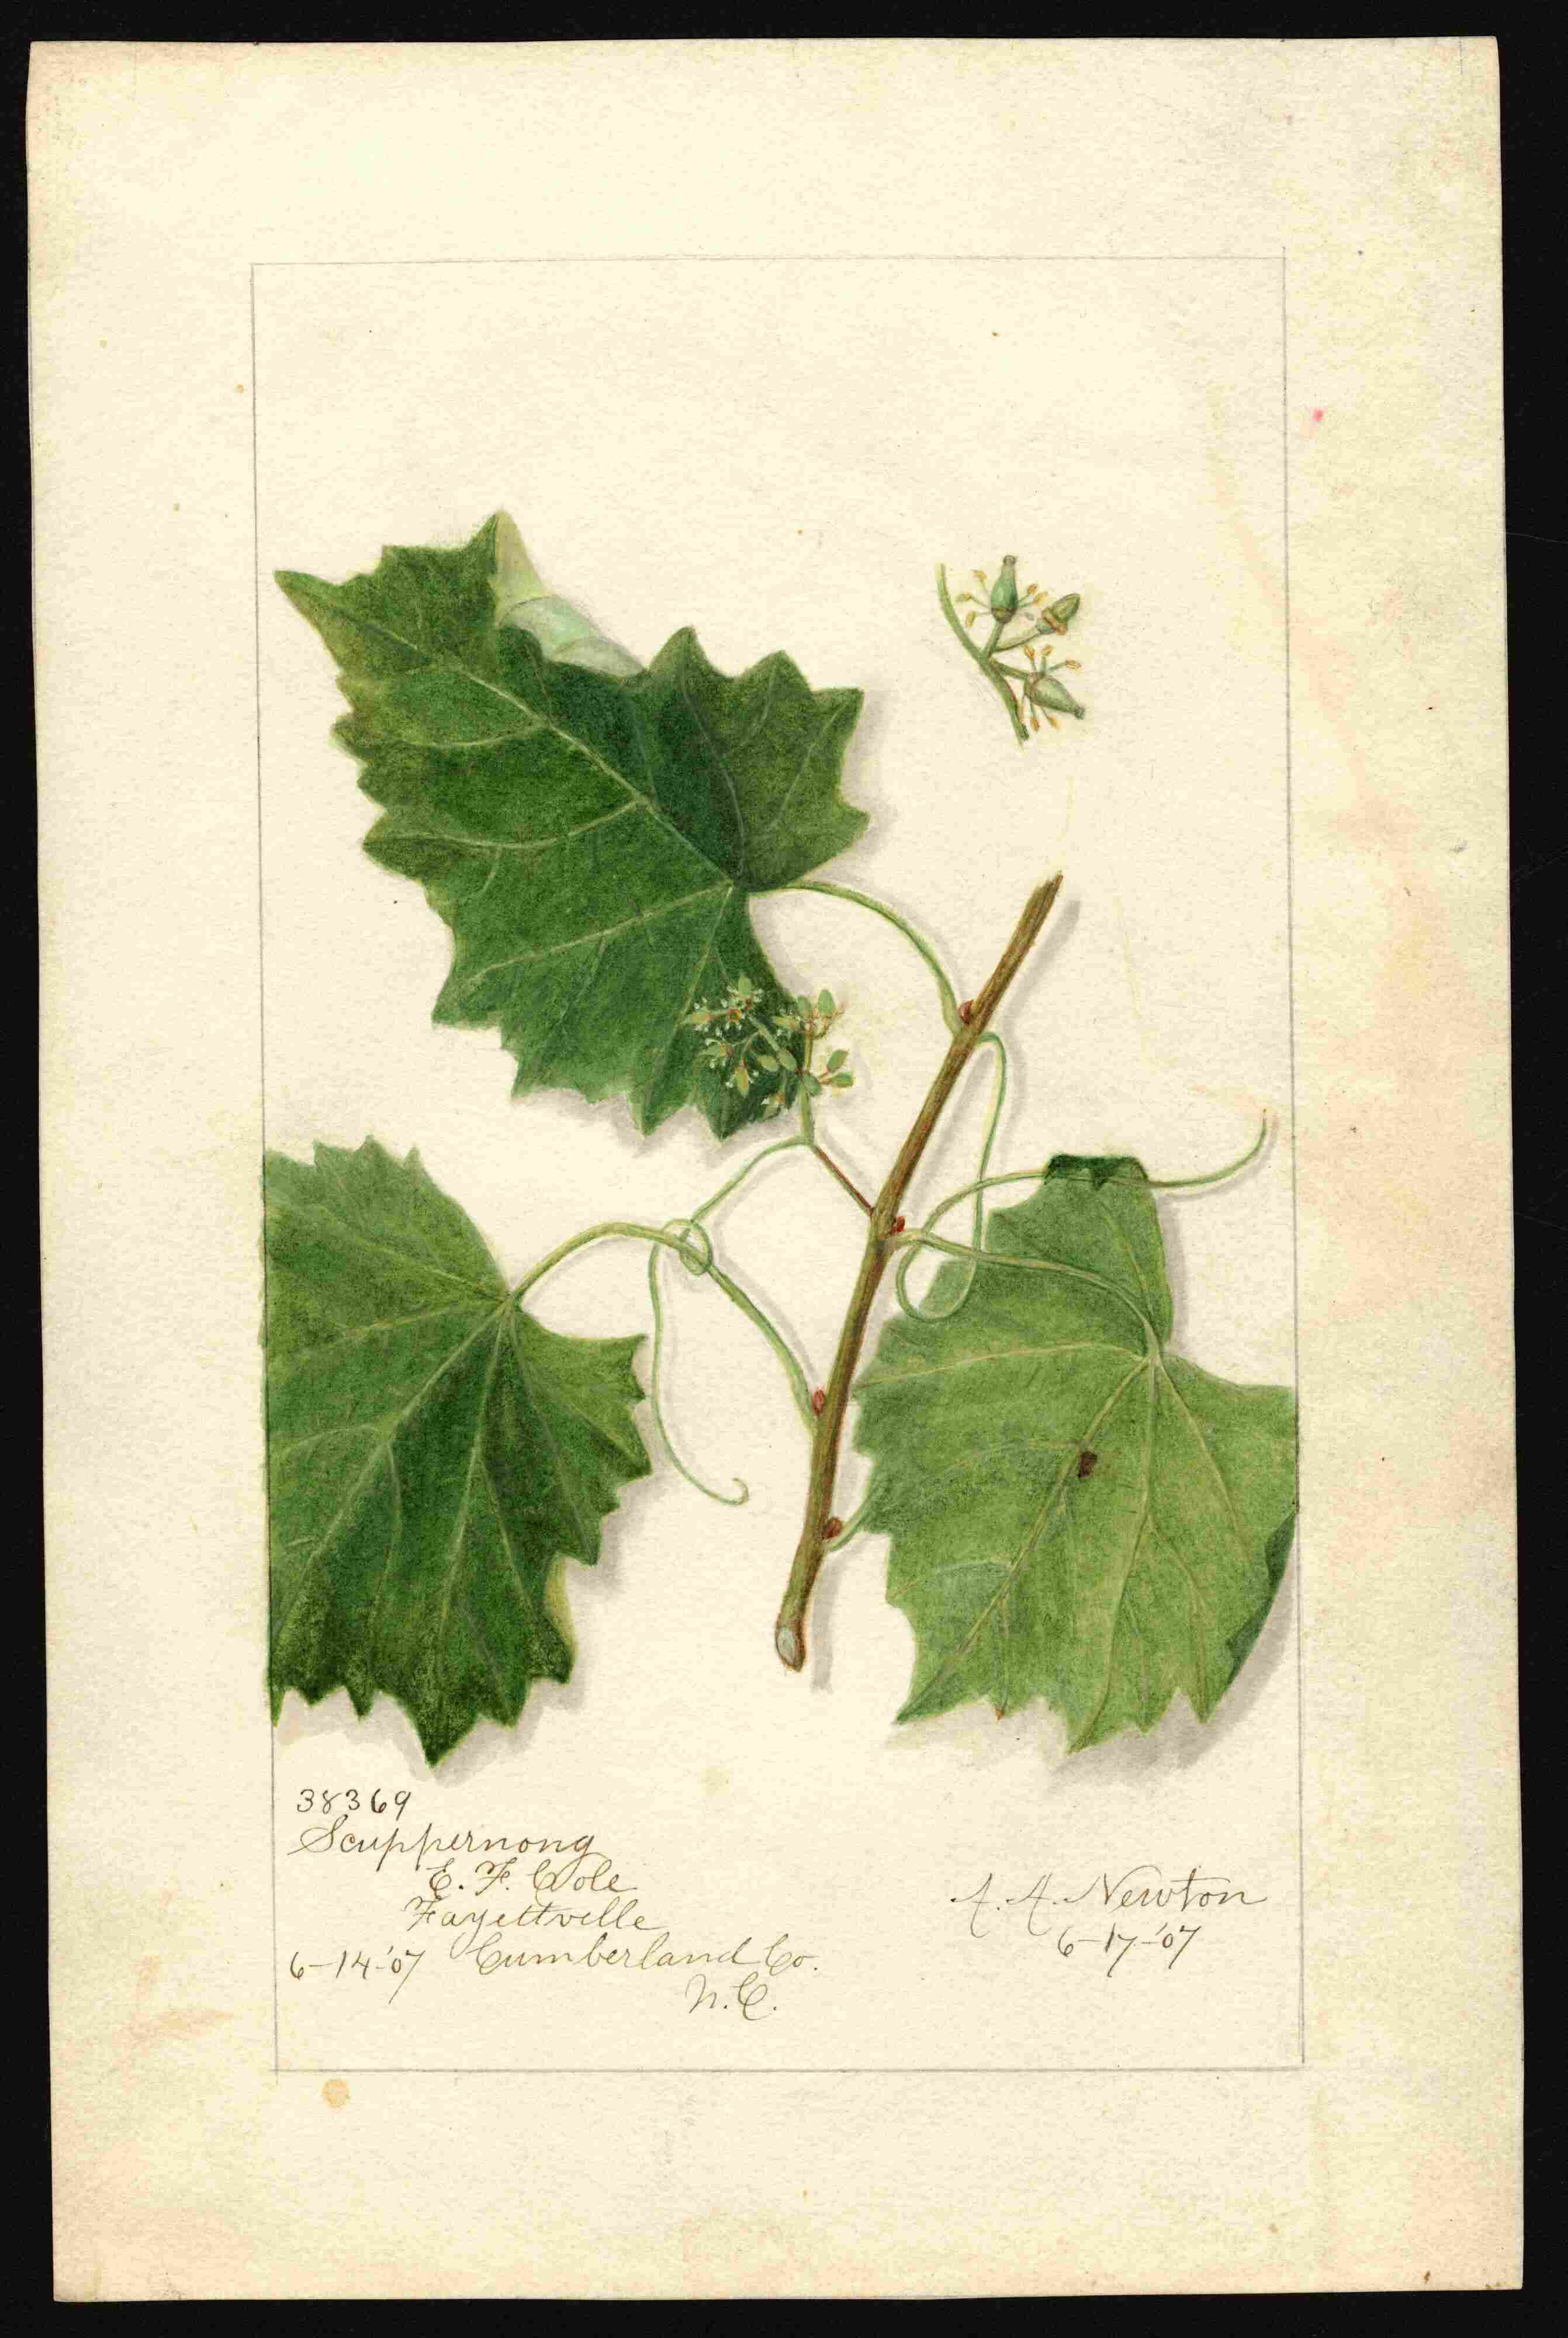 38369
Scuppernong
E. F. Cole
Fayettville
6-14-'07 Cumberland Co.
N.C.
A. A. Newton
6-17-'07